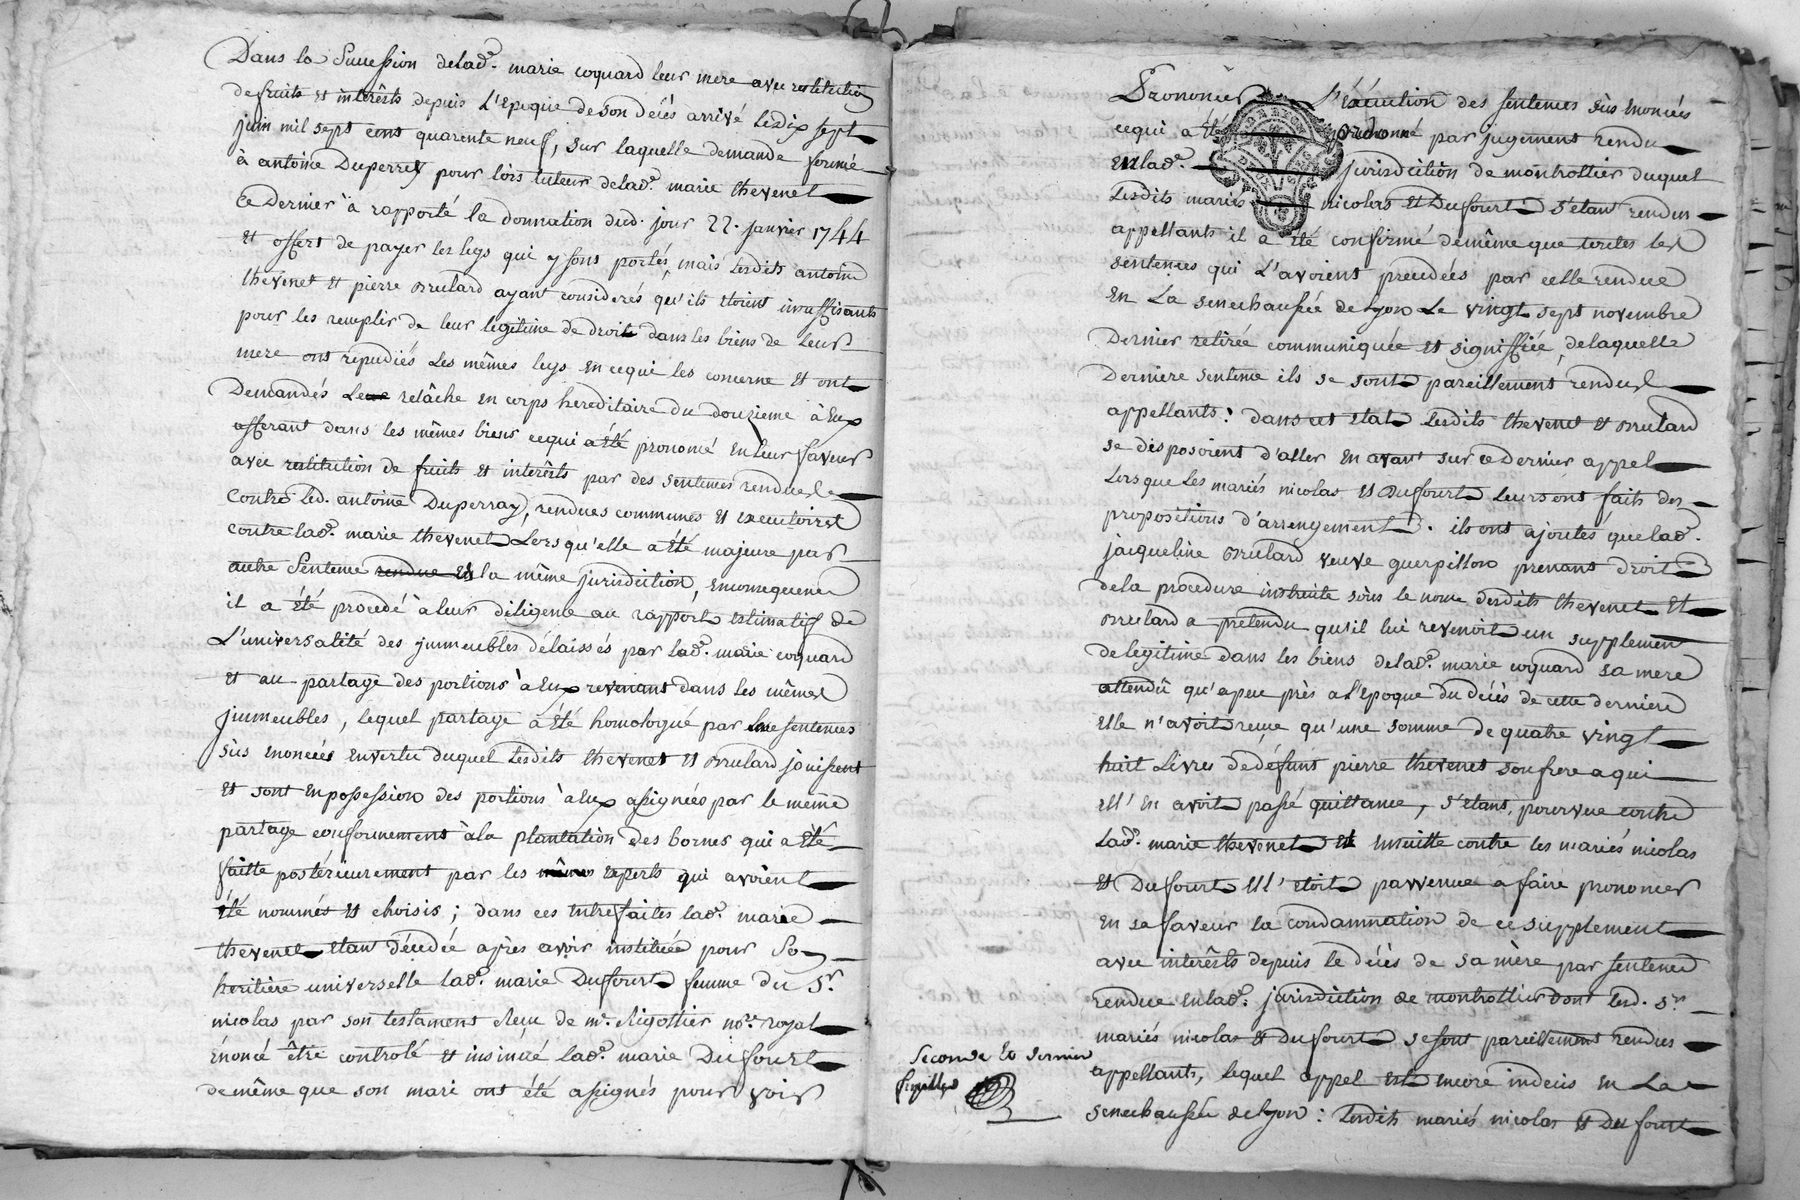 Dans la Succession delad.e marie coquard leur mere avec restitution
defruits Et intérêts depuis L'Epoque deson décés arrivé ledix sept
juin mil sept cent quarente neuf, sur laquelle demande formée
à antoine Duperrey pour lors tuteur delad.e marie thevenet
Ce Dernier à rapporté la donnation dud. jour 22. janvier 1744
Et offert de payer les legs qui y sont portés, mais Lesdits antoine
thevenet Et pierre Brulard ayant considerés qu'ils Etoient insuffisants
pour les remplir de leur legitime de droit dans les biens de Leur
mere ont repudiés Les mêmes legs En cequi les concerne Et ont
Demandés Le relâche En corps hereditaire du douzieme à Eux
afferant dans les mêmes biens cequi a Eté prononcé En leur faveur
avec restitution de fruits Et interêts par des sentences rendues
Contre led. antoine Duperray, rendues communes Et executoires
contre lad.e marie thevenet Lorsqu'elle a Eté majeure par
autre Sentence rendue En la même jurisdiction, Enconsequence
il a Eté procedé à leur diligence au rapport Estimatif de
L'universalité des jmmeubles délaissés par lad.e marie coquard
Et au partage des portions à Eux revenants dans Les mêmes
jmmeubles, lequel partage a Eté homologué par les sentences
sûs Enoncées Envertu duquel lesdits thevenet Et Brulard jouissent
Et sont En possession des portions à Eux assignées par le même
partage conformement à la plantation des bornes qui a Eté
faitte postérieurement par les mêmes Experts qui avoient
Eté nommés Et choisis ; dans ces Entrefaites lad.e marie
thevenet Etant décedée après avoir instituée pour So
heritière universelle lad.e marie Dufourt femme du S.r
nicolas par son testament Reçu de m.e Rigottier no.re royal
Enoncé être controlé Et insinué lad.e marie Dufourt
de même que son mari ont été assignés pour voir
Prononcer l'éxécution des sentences sûs Enoncées
cequi a Eté ordonné par jugement rendu
En lad.e jurisdiction de montrottier duquel
Lesdits mariés nicolas Et Dufourt S'étant rendus
appellants il a été confirmé demême que toutes les
sentences qui L'avoient precedées par celle rendue
En La senechaussée de Lyon Le vingt sept novembre
Dernier retirée communiquée Et signiffiée, delaquelle
Derniere sentence ils se sont pareillement rendus
appellants : dans cet Etat Lesdits thevenet Et Brulard
se disposoient d'aller En avant sur ce Dernier appel
Lorsque Les mariés nicolas Et Dufourt Leurs ont faits des
propositions d'arrengement. ils ont ajoutés que lad.e
jacqueline Brulard veuve guerpillon prenant droit
dela procedure instruite soûs le nom desdits thevenet Et
Brulard a prétendu qu'il lui revenoit un supplement
de legitime dans les biens delad.e marie coquard sa mere
attendû qu'apeu près a l'Epoque du décés de cette derniere
Elle n'avoit reçue qu'une somme de quatre vingt
huit Livres dedéfunt pierre thevenet son frere a qui
Ell' En avoit passé quittance, s'Etant pourvue contre
Lad.e marie thevenet Et Ensuitte contre les mariés nicolas
Et Dufourt Ell' Etoit parvenue a faire prononcer
En sa faveur la condamnation de ce supplement
avec interêts depuis le décés de sa mère par sentence
rendue En lad.e jurisdiction de montrottier dont lesd. S.rs
mariés nicolas Et Dufourt se sont pareillement rendus
appellants, lequel appel Est Encore indecis En La
senechaussée de Lyon : Lesdits mariés nicolas Et Dufourt
Seconde Et dernier
feuillet